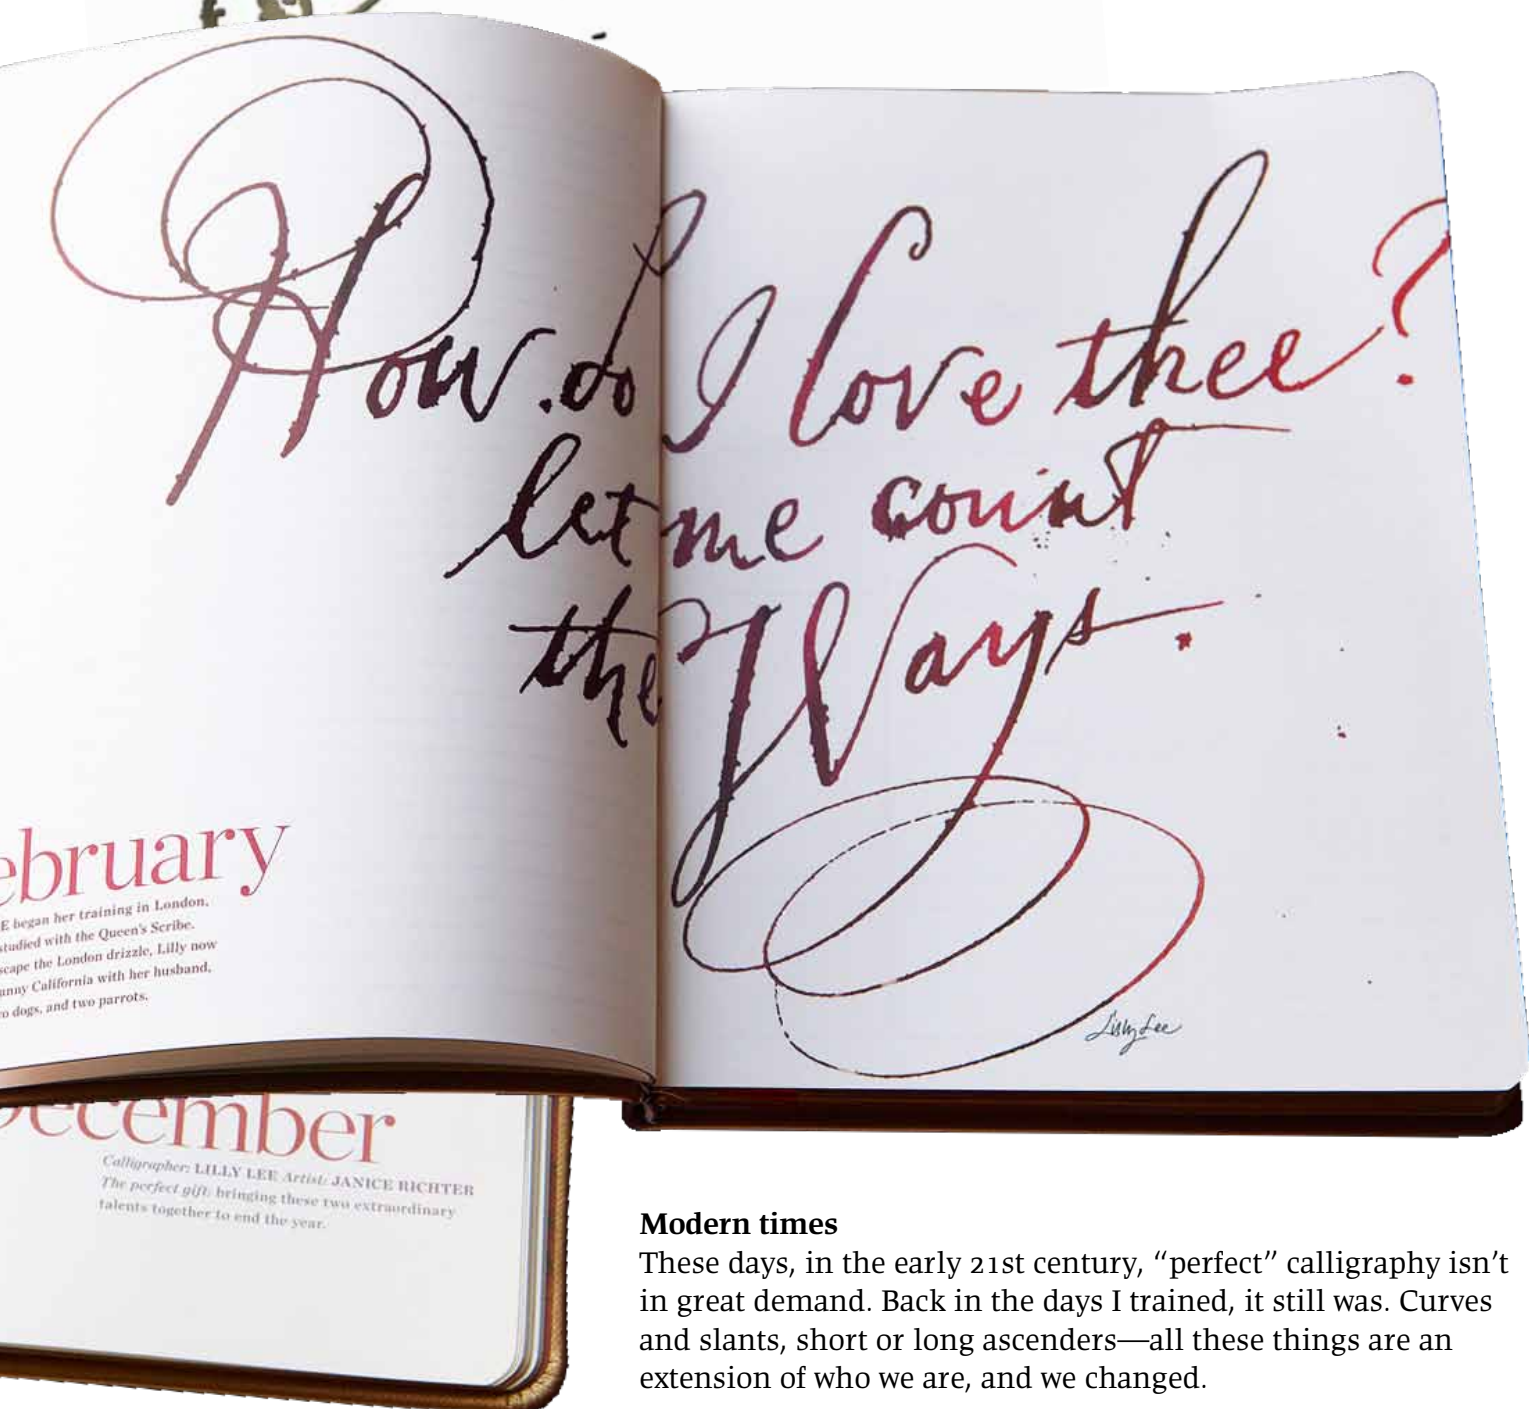 How do I love thee?
let me count
the Ways.
Lilly Lee
ebruary
E began her training in London,
studied with the Queen's Scribe.
scape the London drizzle, Lilly now
unny California with her husband,
o dogs, and two parrots.
December
Calligrapher: LILLY LEE Artist: JANICE RICHTER
The perfect gift: bringing these two extraordinary
talents together to end the year.
Modern times
These days, in the early 21st century, “perfect” calligraphy isn’t
in great demand. Back in the days I trained, it still was. Curves
and slants, short or long ascenders—all these things are an
extension of who we are, and we changed.